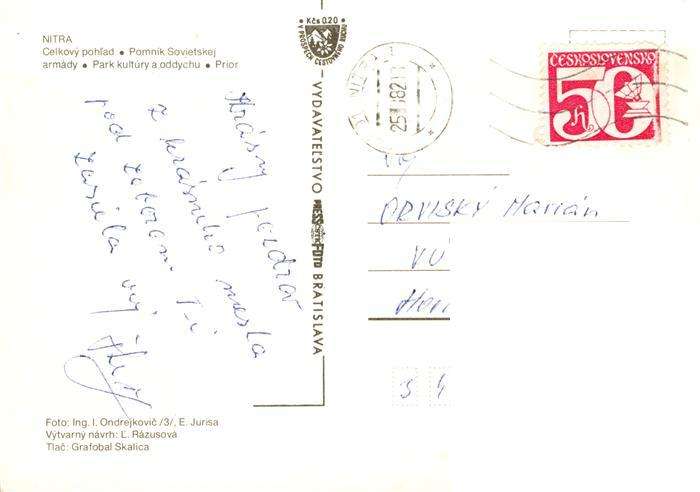 NITRA
Celkový pohľad • Pomník Sovietskej
armády • Park kultúry a oddychu • Prior
Kčs 0.20
V PROSPECH CESTOVNÉHO RUCHU
Krásny pozdrav
z krásneho mesta
pod Zoborom Ti
zasiela
VYDAVATEĽSTVO PRESSFOTO BRATISLAVA
NITRA 1
25 82
ČESKOSLOVENSKO
50 h
ORVISKÝ Marián
VÚ
3 4
Foto: Ing. I. Ondrejkovič /3/, E. Jurisa
Výtvarný návrh: Ľ. Rázusová
Tlač: Grafobal Skalica